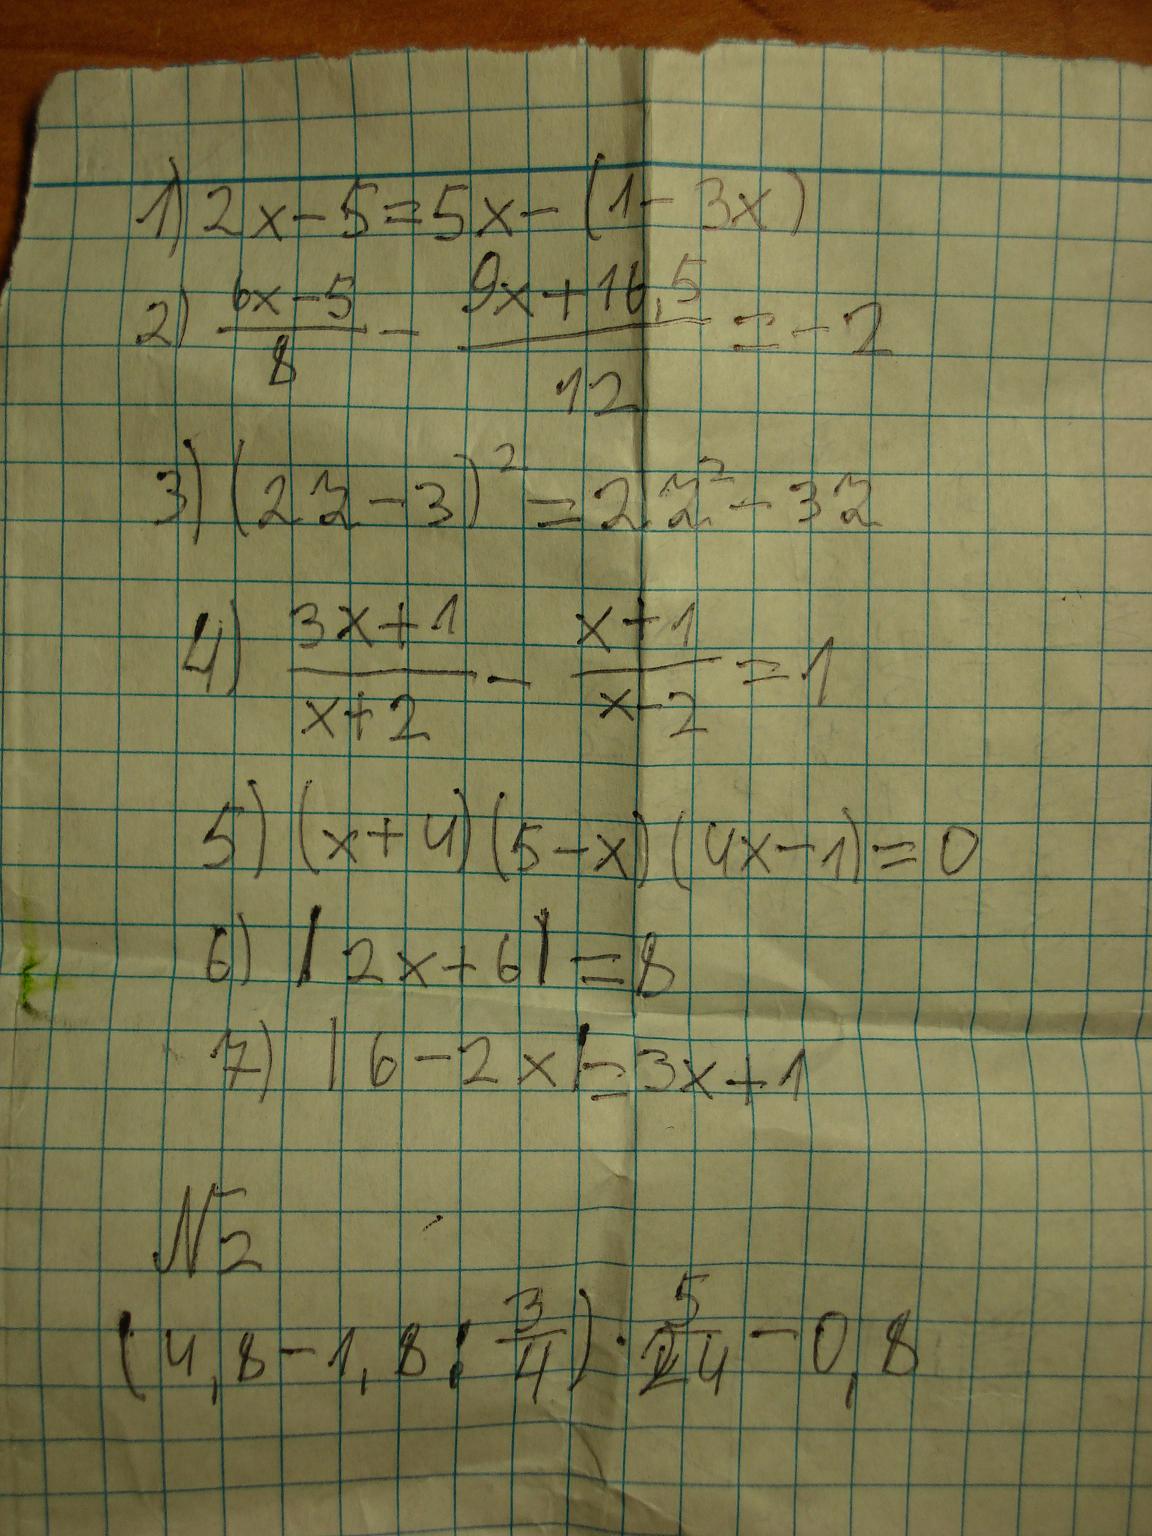 1) 2x-5=5x-(1-3x)
2) (6x-5)/8 - (9x+16,5)/12 = -2
3) (2z-3)² = 2z²-3z
4) (3x+1)/(x+2) - (x+1)/(x-2) = 1
5) (x+4)(5-x)(4x-1)=0
6) |2x+6|=8
7) |6-2x|=3x+1
N2
(4,8-1,8:3/4)·5/24-0,8